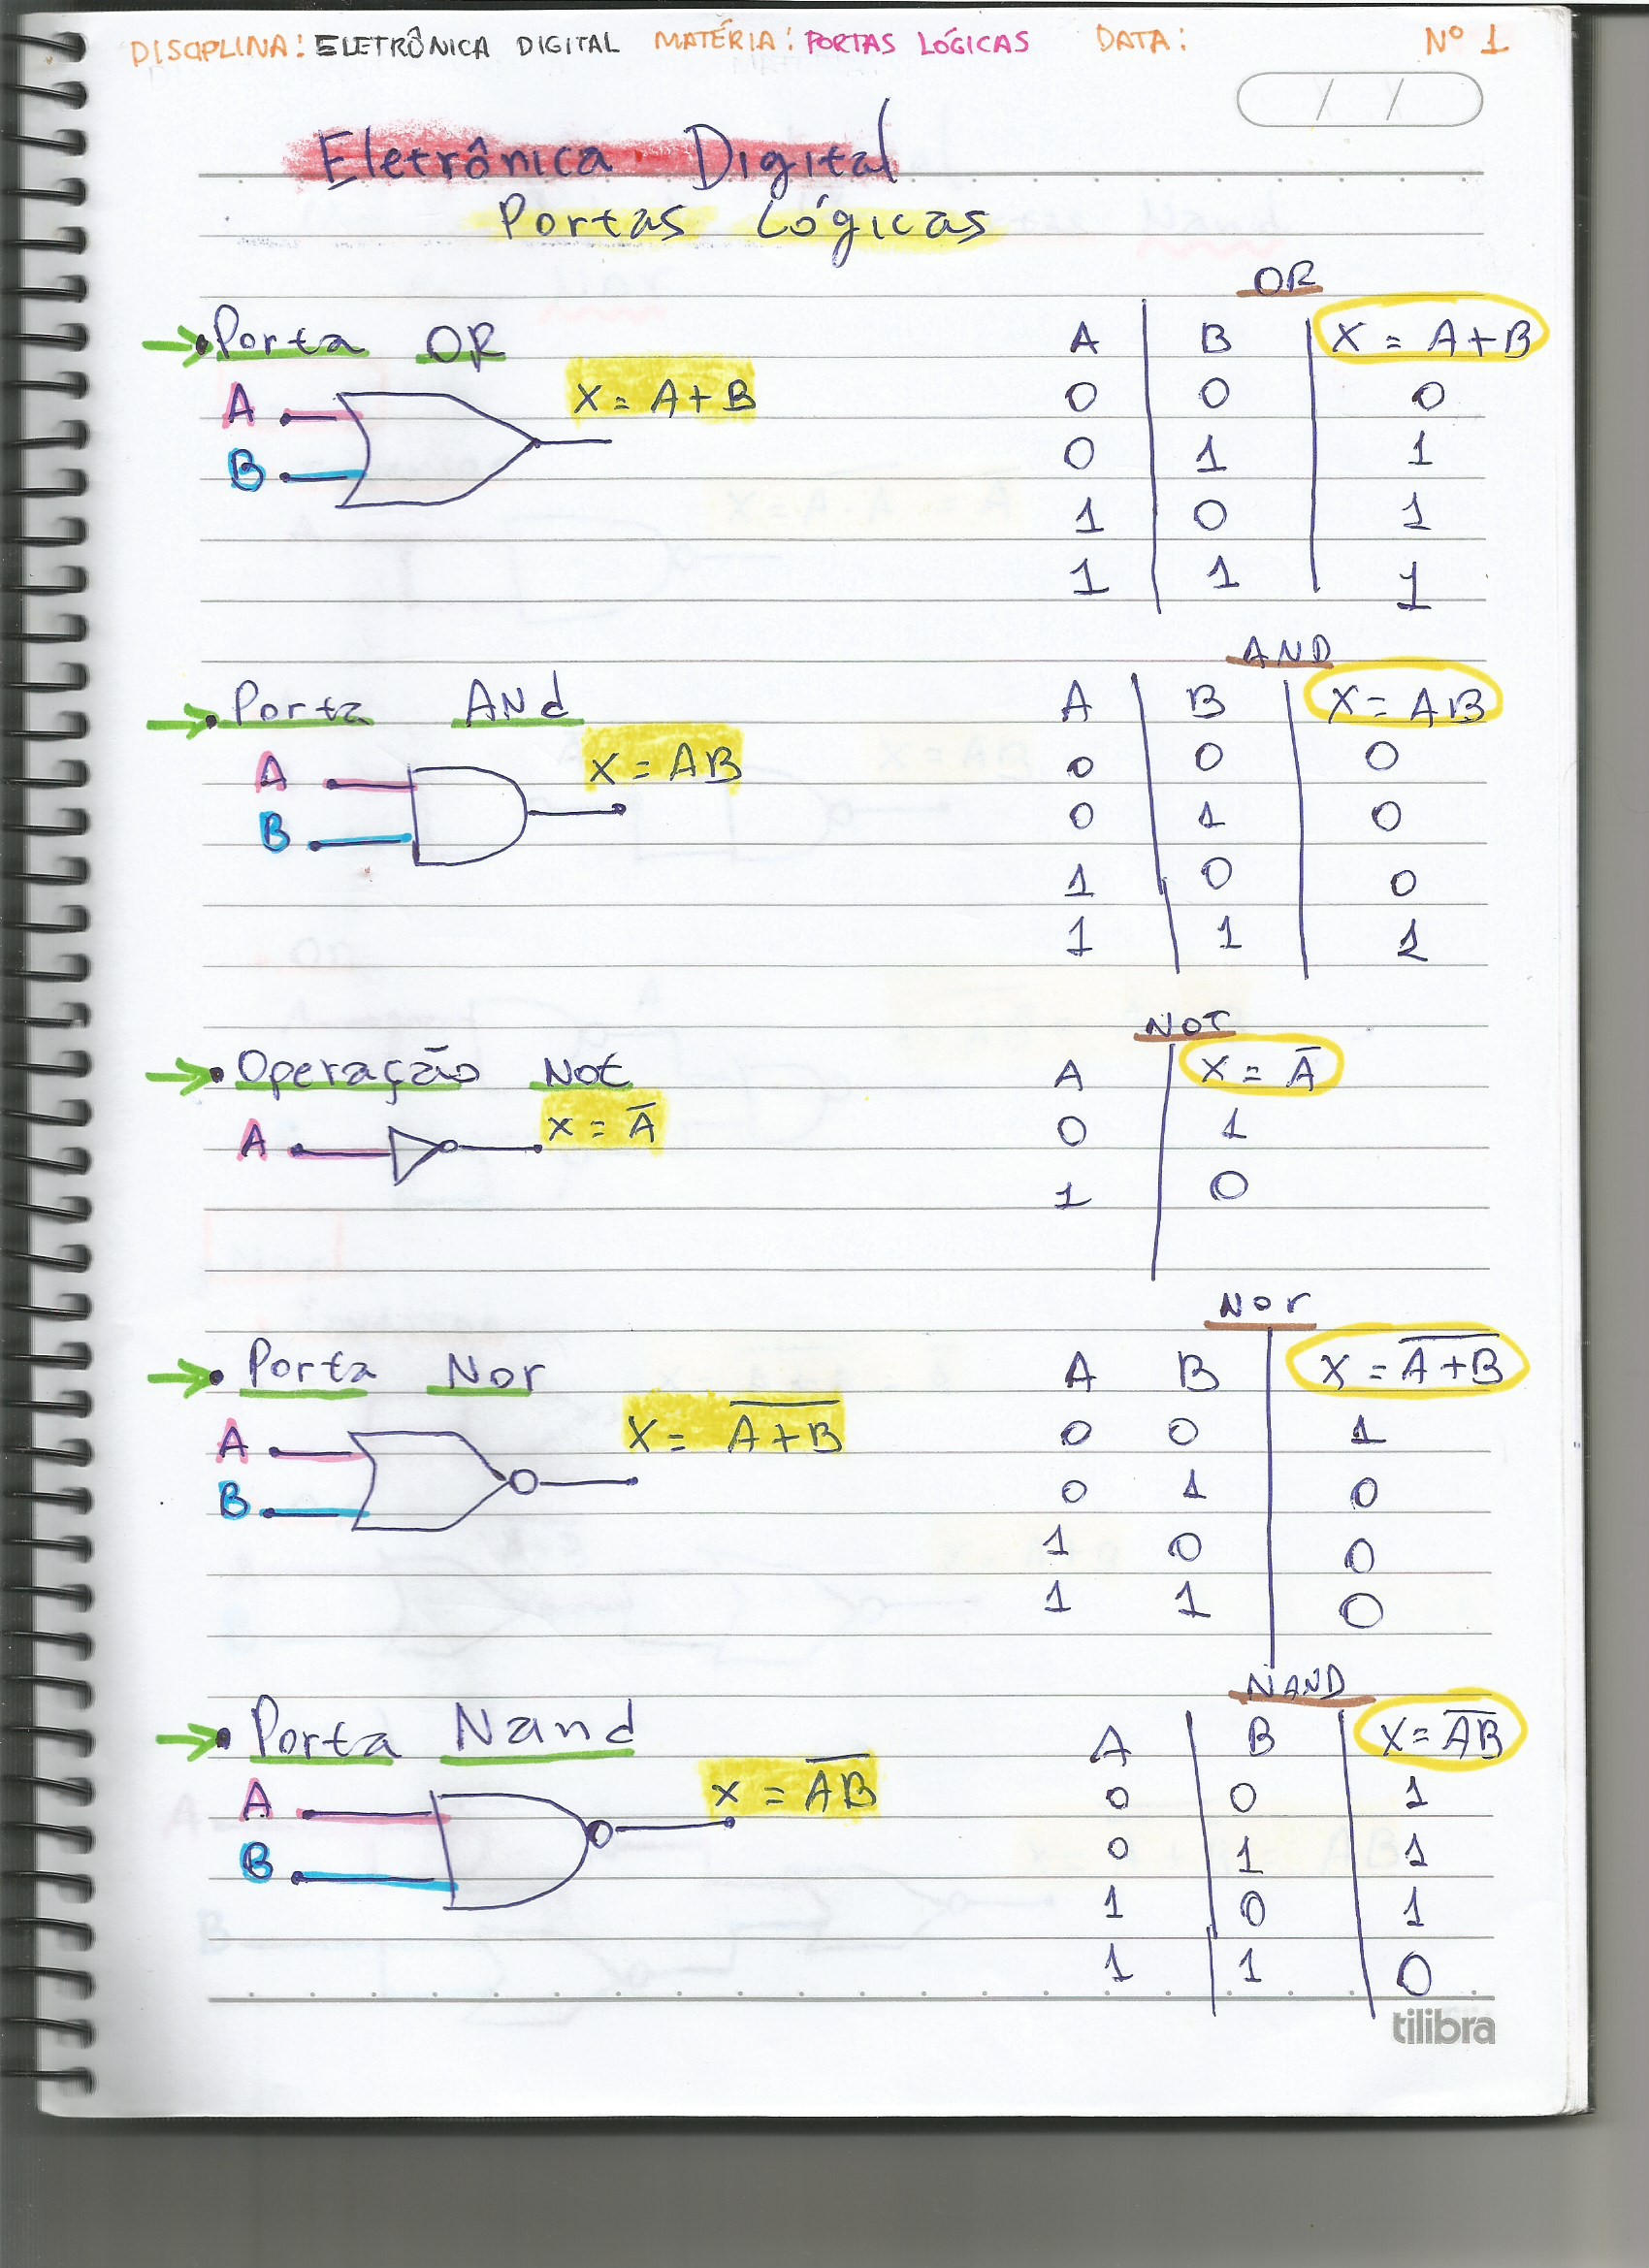 DISCIPLINA: ELETRÔNICA DIGITAL MATÉRIA: PORTAS LÓGICAS DATA: Nº 1
/ /
Eletrônica Digital
Portas Lógicas
OR
Porta OR
A B X = A+B
X = A+B
A
B
0 0 0
0 1 1
1 0 1
1 1 1
AND
Porta ANd
A B X = AB
X = AB
A
B
0 0 0
0 1 0
1 0 0
1 1 1
NOT
Operação Not
A X = A̅
X = A̅
A
0 1
1 0
Nor
Porta Nor
A B X = A̅+̅B̅
X = A̅+̅B̅
A
B
0 0 1
0 1 0
1 0 0
1 1 0
NAND
Porta Nand
A B X = A̅B̅
X = A̅B̅
A
B
0 0 1
0 1 1
1 0 1
1 1 0
tilibra